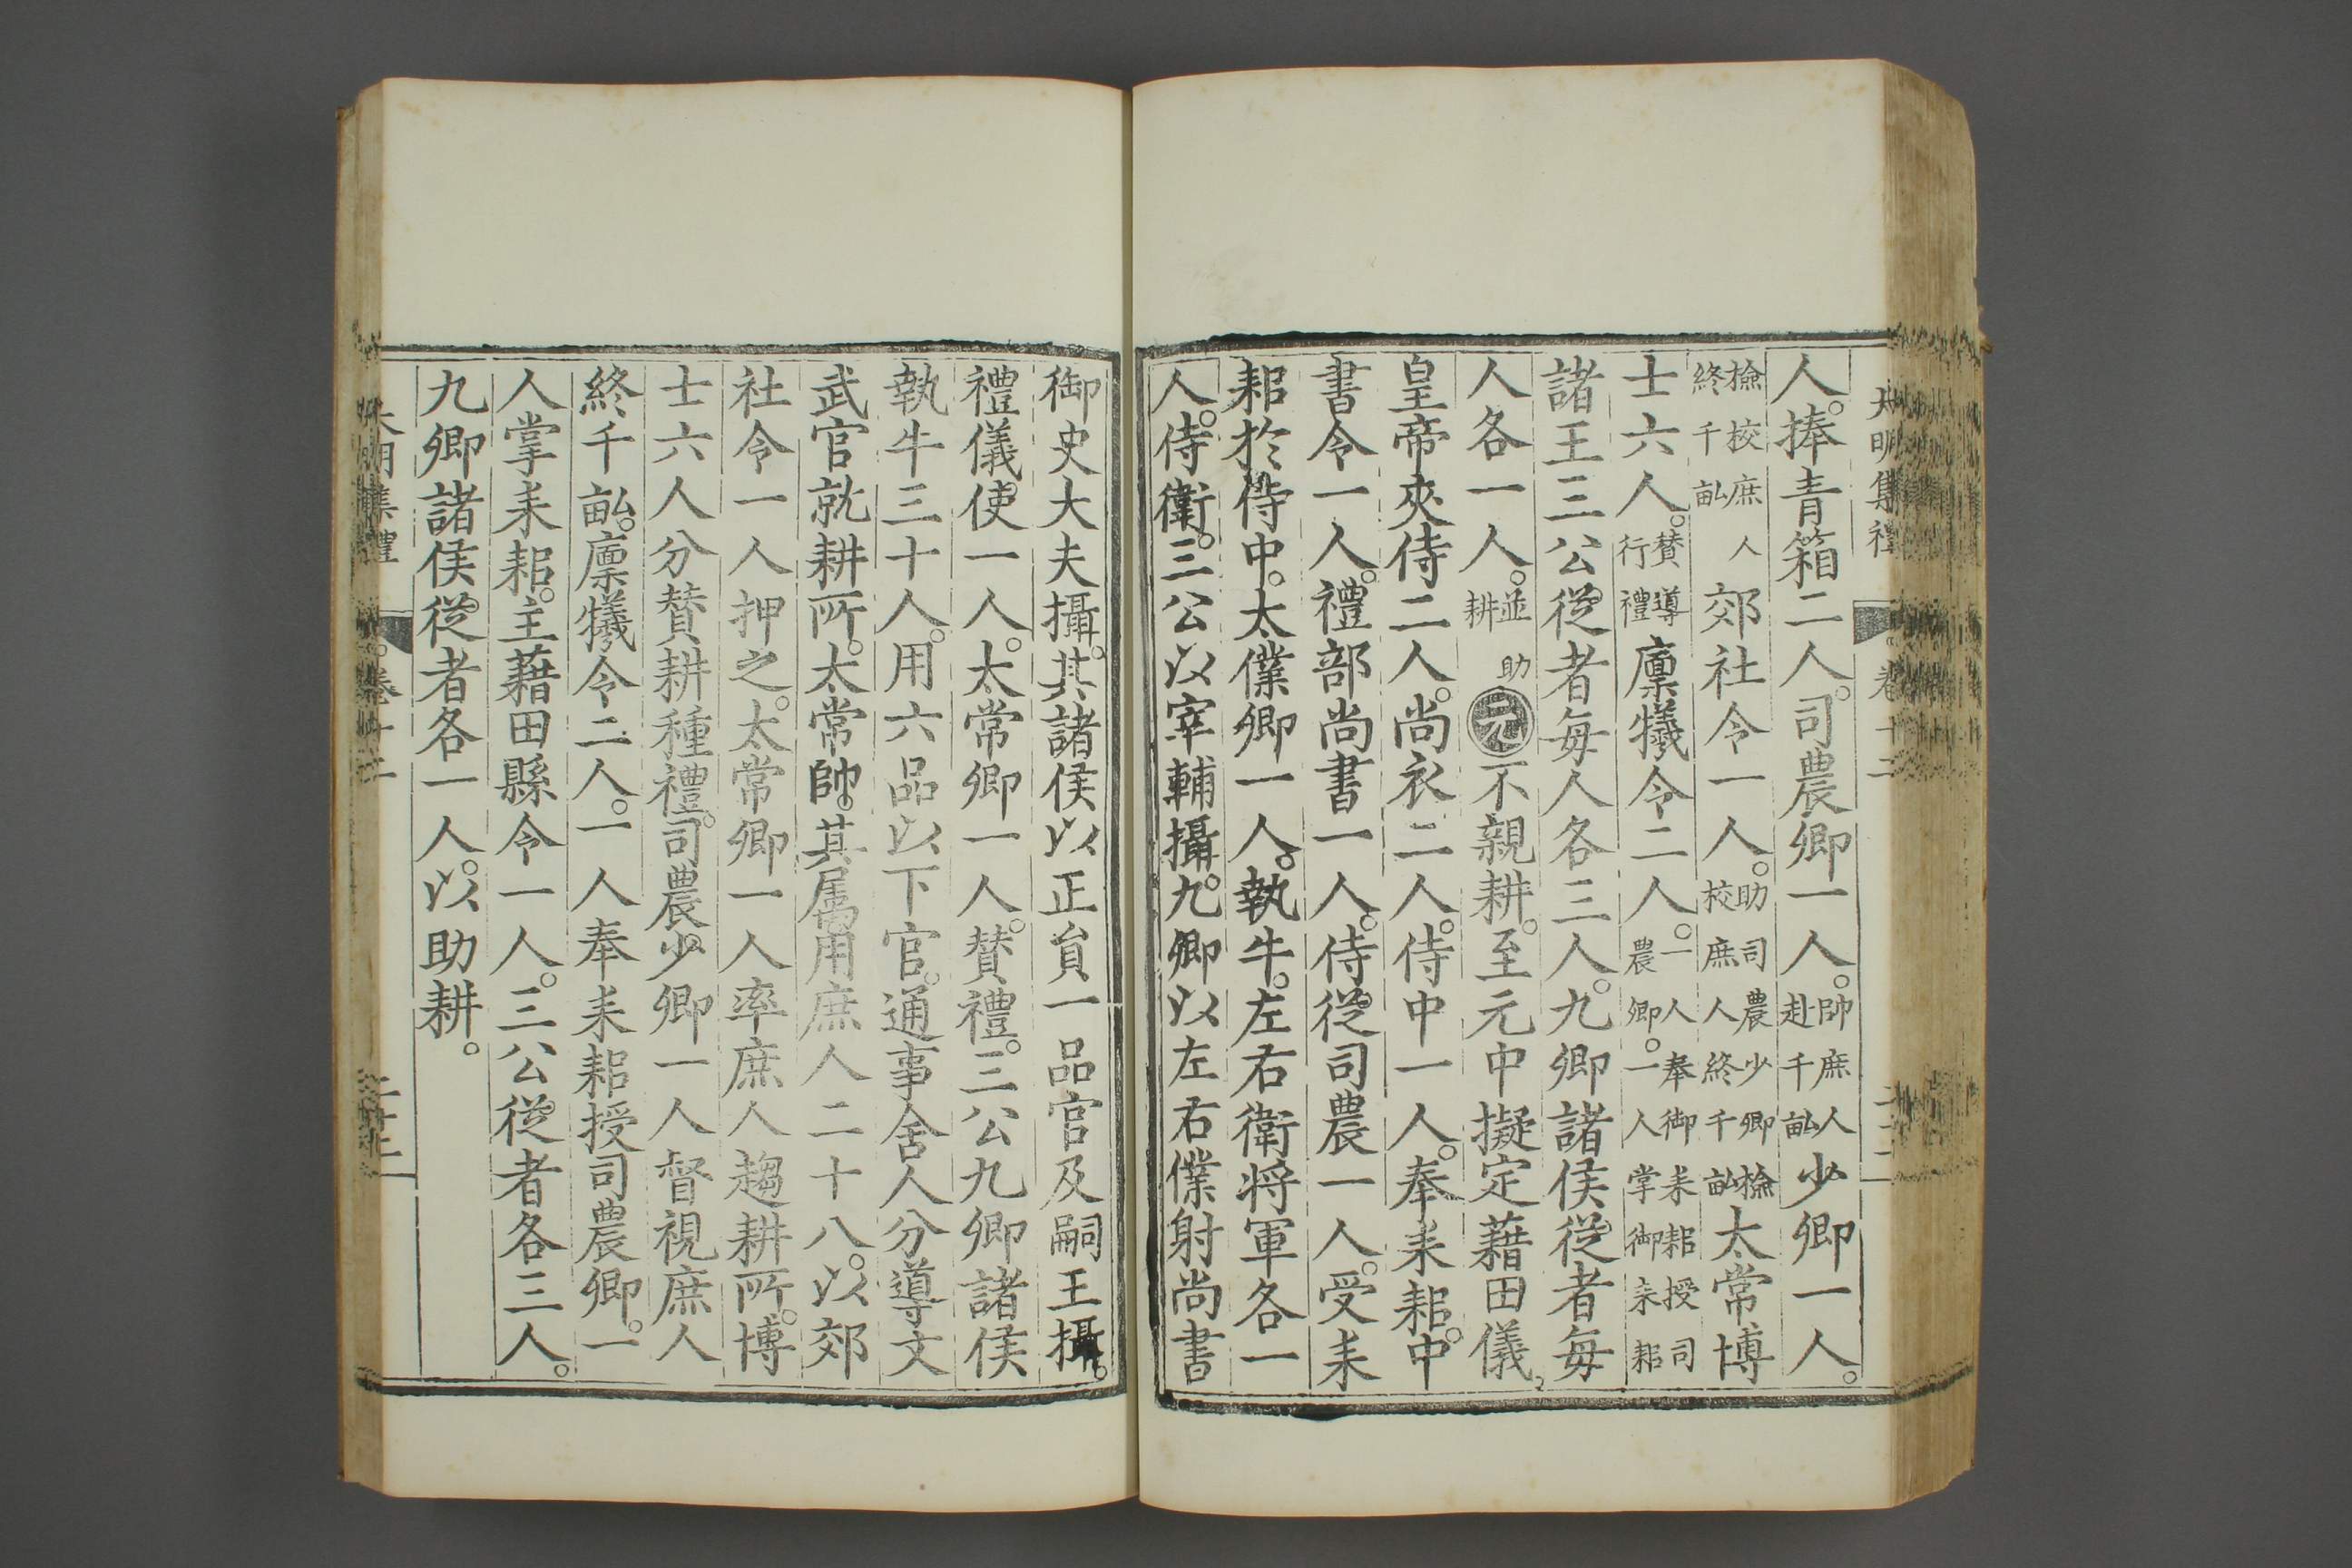 大明集禮 卷十二
人。捧青箱二人。司農卿一人。帥庶人赴千畝少卿一人。
檢校庶人終千畝郊社令一人。助司農少卿檢校庶人終千畝太常博
士六人。賛導行禮廩犧令二人。一人奉御耒耜授司農卿。一人掌御耒耜
諸王三公從者每人各三人。九卿諸侯從者每
人各一人。並助耕元不親耕。至元中擬定藉田儀
皇帝夾侍二人。尚衣二人。侍中一人。奉耒耜。中
書令一人。禮部尚書一人。侍從司農一人。受耒
耜於侍中。太僕卿一人。執牛。左右衛將軍各一
人。侍衛。三公以宰輔攝。九卿以左右僕射尚書
御史大夫攝。其諸侯以正貟一品官及嗣王攝。
禮儀使一人。太常卿一人。賛禮。三公九卿諸侯
執牛三十人。用六品以下官。通事舍人分導文
武官就耕所。太常帥其屬用庶人二十八。以郊
社令一人押之。太常卿一人率庶人趨耕所。博
士六人分賛耕種禮。司農少卿一人督視庶人
終千畝。廩犧令二人。一人奉耒耜授司農卿。一
人掌耒耜。主藉田縣令一人。三公從者各三人。
九卿諸侯從者各一人。以助耕。
大明集禮 卷十二